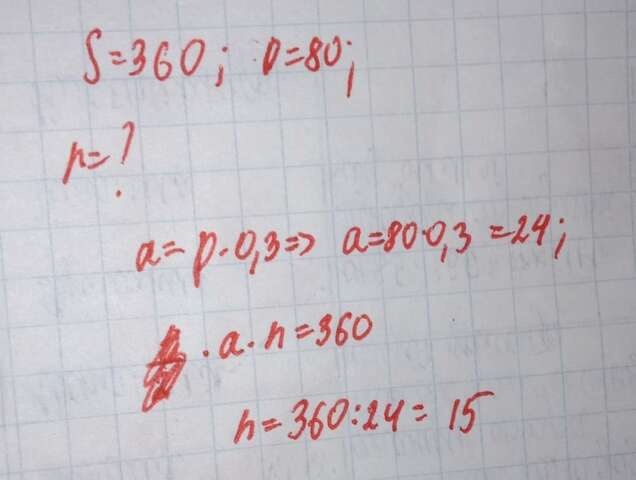 S=360; P=80;
h=?
a=p·0,3=> a=80·0,3=24;
·a·h=360
h=360:24=15